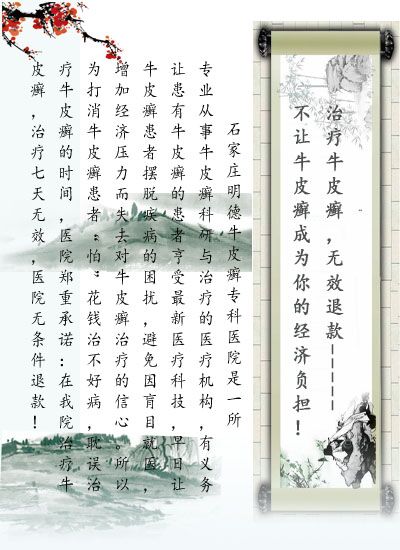 治疗牛皮癣，无效退款-----
不让牛皮癣成为你的经济负担！
石家庄明德牛皮癣专科医院是一所
专业从事牛皮癣科研与治疗的医疗机构，有义务
让患有牛皮癣的患者享受最新医疗科技，早日让
牛皮癣患者摆脱疾病的困扰，避免因盲目就医，
增加经济压力而失去对牛皮癣治疗的信心。所以
为打消牛皮癣患者“怕”花钱治不好病，耽误治
疗牛皮癣的时间，医院郑重承诺：在我院治疗牛
皮癣，治疗七天无效，医院无条件退款！